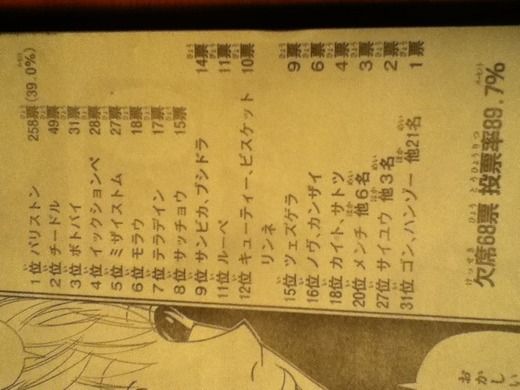 1位 パリストン 258票(39.0%)
2位 チードル 49票
3位 ボトバイ 31票
4位 イックションペ 28票
5位 ミザイストム 27票
6位 モラウ 18票
7位 テラデイン 17票
8位 サッチョウ 15票
9位 サンビカ、ブシドラ 14票
11位 ルーペ 11票
12位 キューティー、ビスケット 10票
リンネ
15位 ツェズゲラ 9票
16位 ノヴ、カンザイ 6票
18位 カイト、サトツ 4票
20位 メンチ 他6名 3票
27位 サイユウ 他3名 2票
31位 ゴン、ハンゾー 他21名 1票
欠席68票 投票率89.7%
おかしい